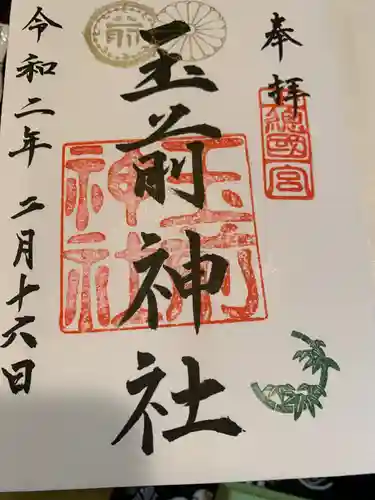 奉拝
總國宮
玉前神社
玉前神社
前
令和二年二月十六日